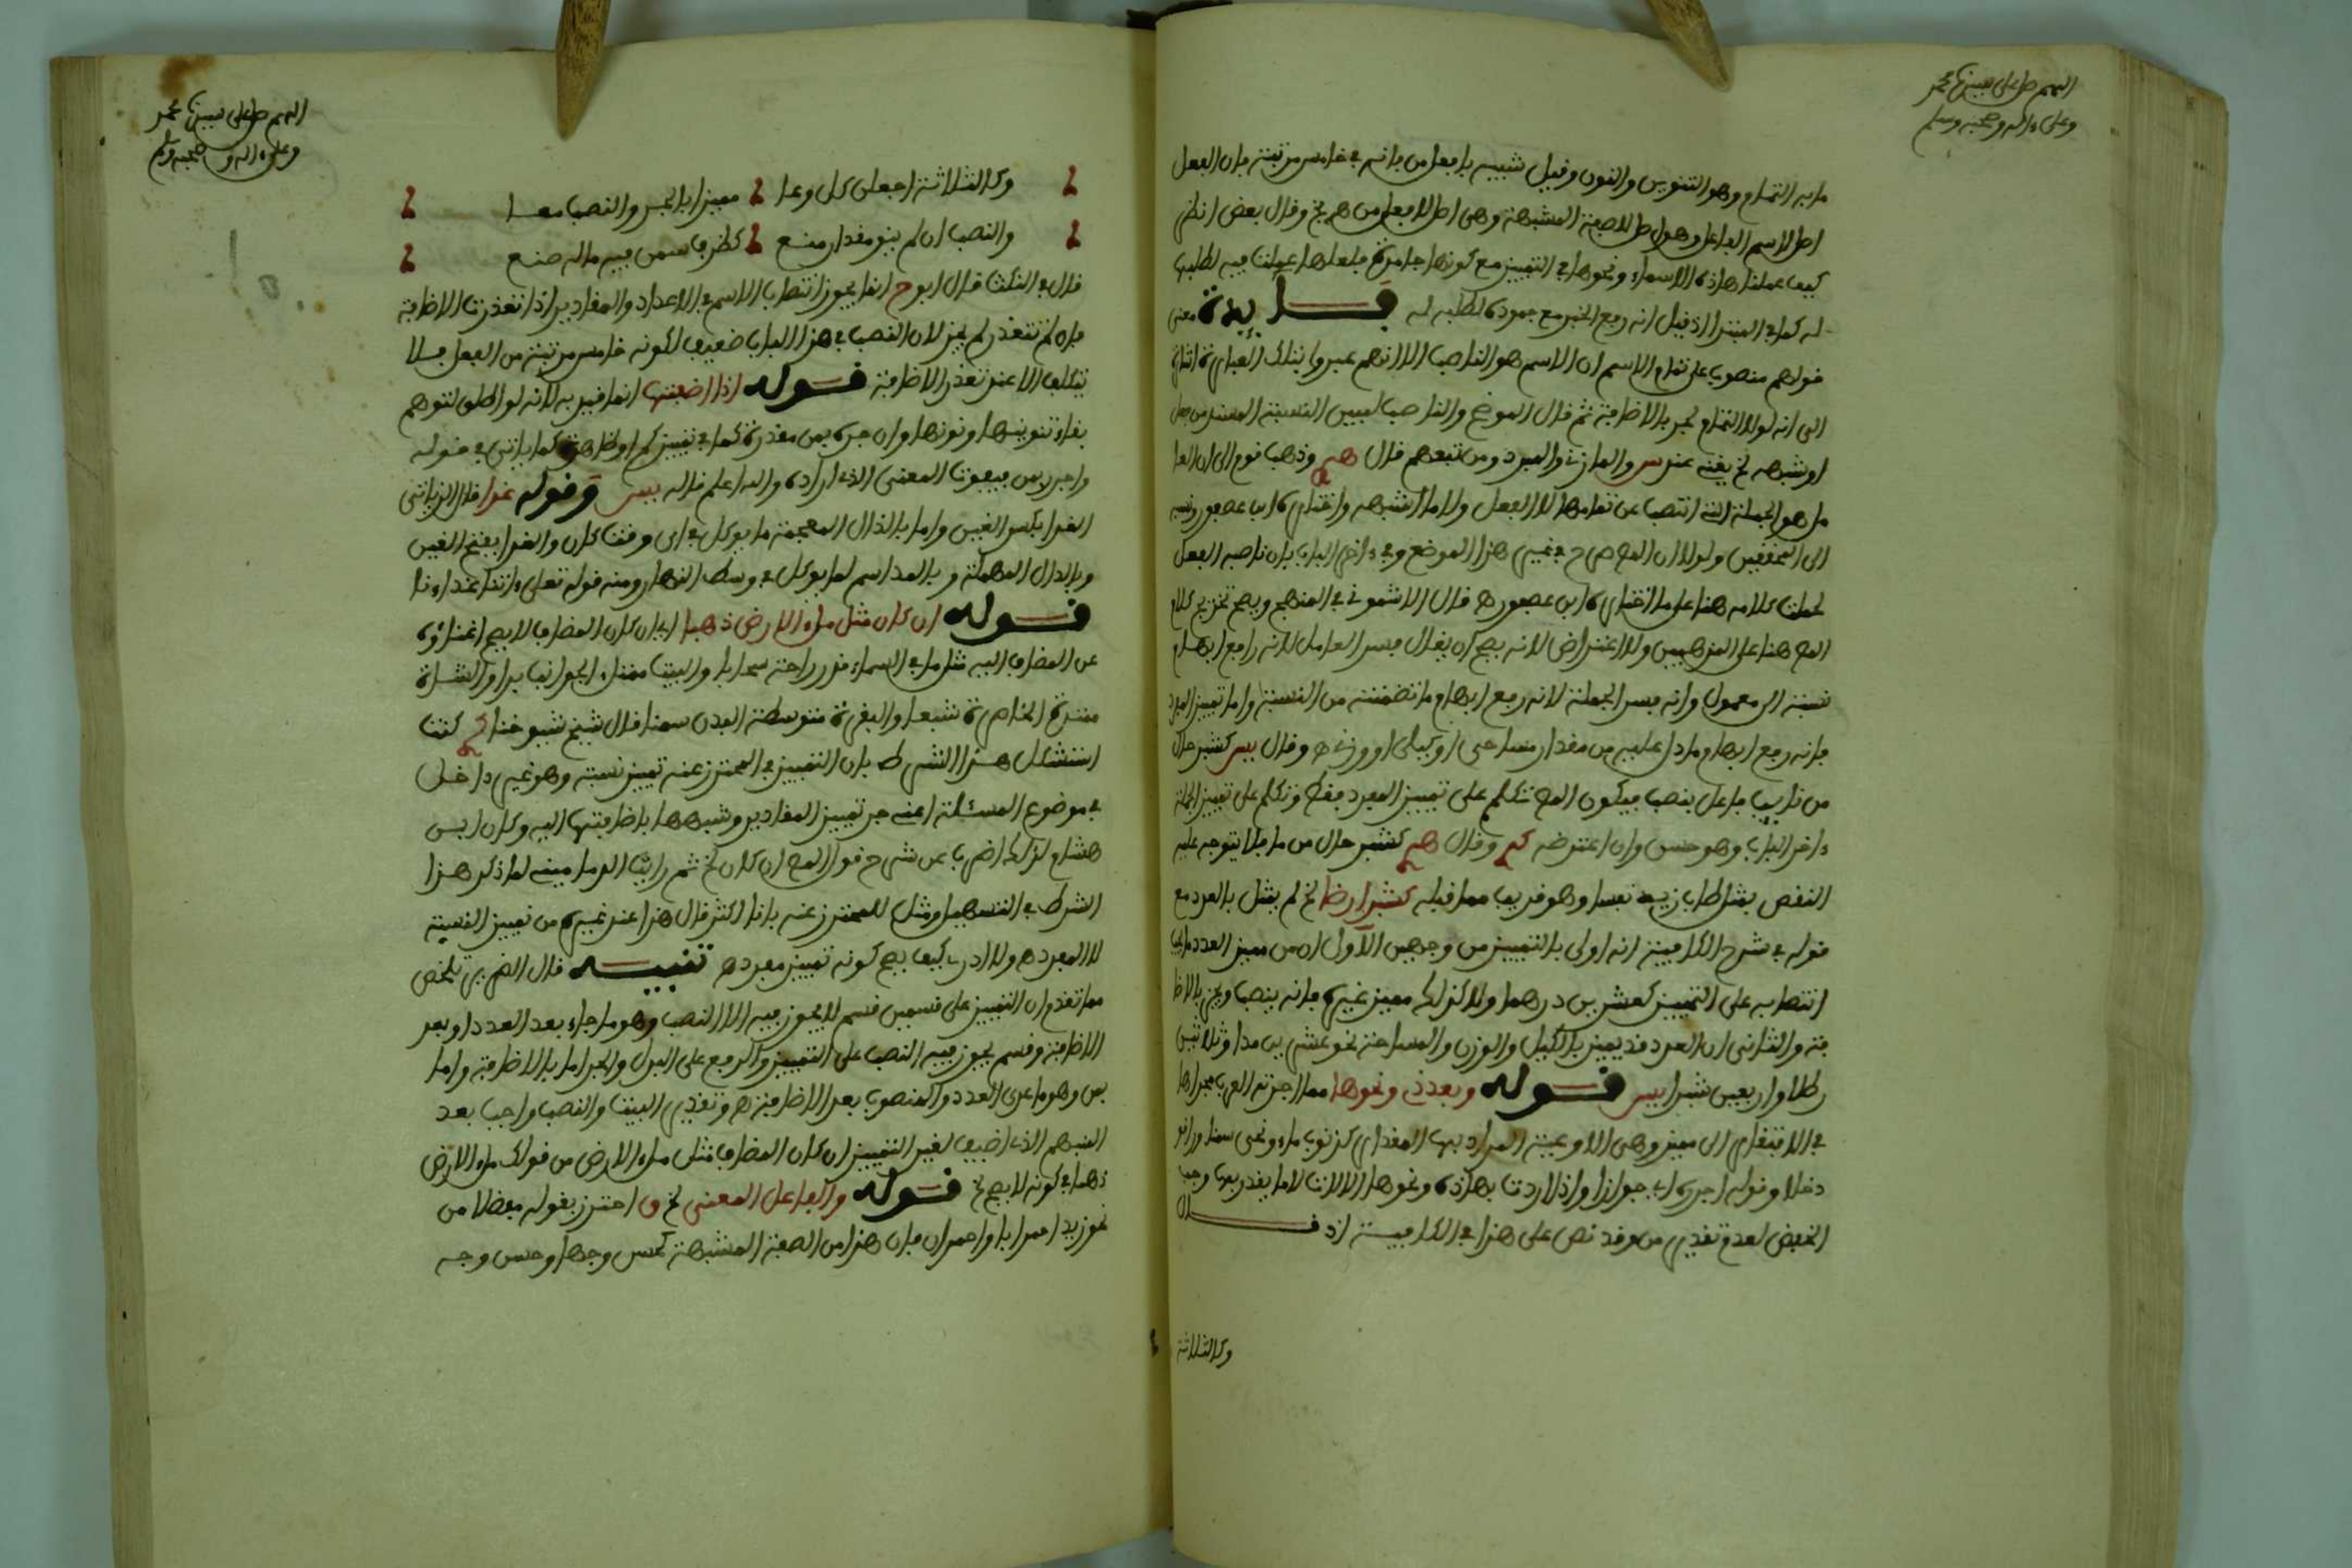 اللهم صل على نبينا محمد
وعلى ءاله وصحبه وسلم
ما به التمام وهو التنوين والنون وقيل شبيه بافعل من فإنه في خامس مرتبة فإن الفعل
اصل لاسم الفاعل وهو اصل للصفة المشبهة وهي اصل لافعل من هـ نخ وقال بعض انظر
كيف عملت هذه الاسماء ونحوها في التمييز مع كونها جامدة فلعلها عملت فيه لطلبها
له كما في المبتدا اذ قيل انه رفع الخبر مع جموده لطلبه له فـــايدة معنى
قولهم منصوب عن تمام الاسم ان الاسم هو الناصب الا انهم عبروا بتلك العبارة اشارة
الى انه لولا التمام لجر بالاضافة ثم قال الموضح والناصب لمبين النسبة المسند من فعل
او شبهه نخ يعنه عند س والمازني والمبرد ومن تبعهم قال هم وذهب قوم الى ان العا
مل هو الجملة التي انتصب عن تمامها لا الفعل ولا ما اشبهه واختاره ابن عصفور ونسبه
الى المحققين ولولا ان المص صرح في غير هذا الموضع وفي ءاخر الباب بان ناصبه الفعل
لحملت كلامه هنا على ما اختاره ابن عصفور هـ قال الاشموني في المنهج ويصح تخريج كلام
المص هنا على المذهبين ولا اعتراض لانه يصح ان يقال فسر العامل لانه رافع ابهام
نسبته الى معموله وانه فسر الجملة لانه رفع ابهام ما تضمنته من النسبة واما تمييز المفرد
فانه رفع ابهام ما دل عليه من مقدار مساحي او كيلي او وزني هـ وقال يس كشبر حال
من نايب فاعل ينصب فيكون المص تكلم على تمييز المفرد فقط وتكلم على تمييز الجملة
ءاخر الباب وهو حسن وان اعترضه كم وقال هم كشبر حال من ما فلا يتوجه عليه
النقص بمثل طاب زيد نفسا وهو قريب مما قبله كشبر ارضا نخ لم يمثل بالعدد مع
قوله في شرح الكافية انه اولى بالتمييز من وجهين الاول ان من مميز العدد ما يجب
انتصابه على التمييز كعشرين درهما ولا كذلك مميز غيره فانه ينصب ويجر بالاضا
فة والثاني ان العدد قد يميز بالكيل والوزن والمساحة نحو عشرين مدا وثلاثين
رطلا واربعين شبرا يس قــوله وبعد ذي ونحوها مما اجرته العرب مجراها
في الافتقار الى مميز وهي الاوعية المراد بها المقدار كذنوب ماء ونحى سمنا وراقو
دخلا وقوله اجرره اي جوازا واذا اردت بهذه ونحوها الالات لا ما يقدر بها وجب
الخفض لعدم تقدير من وقد نص على هذا في الكافية اذ قـــال
وكالثلاثة
اللهم صل على نبينا محمد
وعلى ءاله وصحبه وسلم
وكالثلاثة اجعلن كل وعا مميزا بالجر والنصب معــا
والنصب ان لم ينو مقدار منع كظرف سمن فيه ماله صنع
قال في النكت قال ابو ح انما يجوز انتصاب الاسم في الاعداد والمقادير اذا تعذرت الاضافة
فان لم تتعذر لم يجز لان النصب في هذا الباب ضعيف لكونه خامس مرتبة من الفعل فلا
يتكلف الا عند تعذر الاضافة قــوله اذا اضفتها انما قيد به لانه لو اطلق لتوهم
بقاء تنوينها ونونها وان جره بمن مقدرة كما في تمييز كم او ظاهرة كما ياتي في قوله
واجرر بمن فيفوت المعنى الذي اراده والله اعلم قاله يس وقوله غذا قال الزياتي
الغذا بكسر الغين واما بالذال المعجمة ما يوكل في اي وقت كان والغدا بفتح الغين
وبالدال المهملة وبالمد اسم لما يوكل في وسط النهار ومنه قوله تعلى ءاتنا غداءنا
قــوله ان كان مثل ملء الارض ذهبا اي بان كان المضاف لا يصح اغناؤه
عن المضاف اليه مثل ما في السماء قدر راحة سحابا والبيت ممتلء الجوانب برا والشاة
منتفخة الخاصرة شبعا والبقرة متوسطة البدن سمنا قال شيخ شيوخنا كم كنت
استشكل هــذا الشرط بان التمييز في المحترز عنه تمييز نسبة وهو غير داخل
في موضوع المسئلة اعني جر تمييز المقادير وشبهها باضافتها اليه وكان ابن
هشام لذلك اضرب عن شرح قول المص ان كان نخ ثم رايت الدماميني لما ذكر هــذا
الشرط في التسهيل ومثل للمحترز عنه بانا اكثر قال هذا عند غيره من تمييز النسبة
لا المفرد هـ ولا ادري كيف يصح كونه تمييز مفرد هـ تنبيــه قال الضرير يلخص
مما تقدم ان التمييز على قسمين قسم لا يجوز فيه الا النصب وهو ما جاء بعد العدد او بعد
الاضافة وقسم يجوز فيه النصب على التمييز والرفع على البدل والجر اما بالاضافة واما
بمن وهو ما عدى العدد والمنصوب بعد الاضافة هـ وتقدير البيت والنصب واجب بعد
المبهم الذي اضيف لغير التمييز ان كان المضاف مثل ملء الارض من قولك ملء الارض
ذهبا في كونه لا يصح نخ قــوله والفاعل المعنى نخ ق احترز بقوله مفضلا من
نحو زيد احمر ابا واحمر ان فان هذا من الصفة المشبهة كحسن وجها وحسن وجه